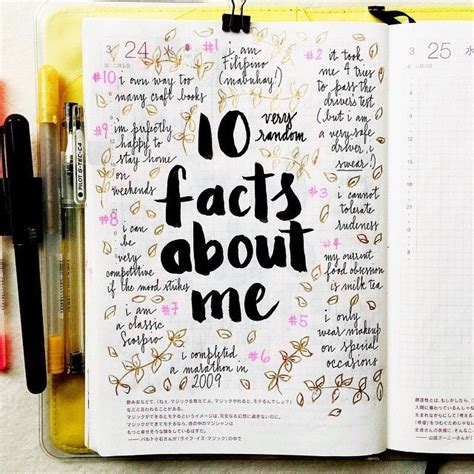 3
24
水
3
25
木
10
very
random
facts
about
me
#1
i am
Filipino
(mabuhay!)
#2
it took
me 4 tries
to pass the
driver's test
(but i am
a very safe
driver, i
swear!)
#3
i cannot
tolerate
rudeness
#4
my current
food obsession
is milk tea
#5
i only
wear makeup
on special
occasions
#6
i completed
a marathon in
2009
#7
i am
a classic
Scorpio
#8
i can
be
very
competitive
if the mood strikes
#9
im perfectly
happy to
stay home
on
weekends
#10
i own way too
many craft books
PILOT G-TEC-C4